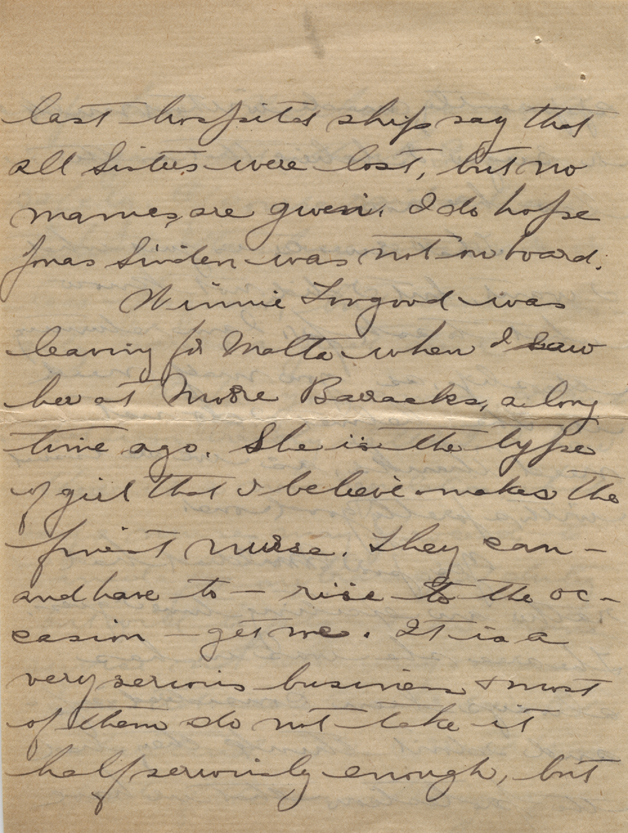 last hospital ship say that
all Sisters were lost, but no
names are given. I do hope
Jonas Sinden was not on board.
Winnie Toogood was
leaving for Malta when I saw
her at Moore Baracks, a long
time ago. She is the type
of girl that I believe makes the
finest nurse. They can -
and have to - rise to the oc-
casion - get me. It is a
very serious business & most
of them do not take it
half seriously enough, but